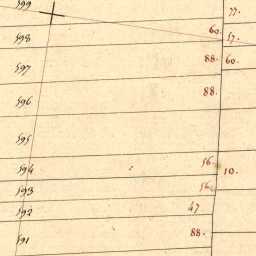 599 77.
598 60. 57.
597 88. 60.
596 88.
595
594 56. 10.
593 56.
592 47
591 88.